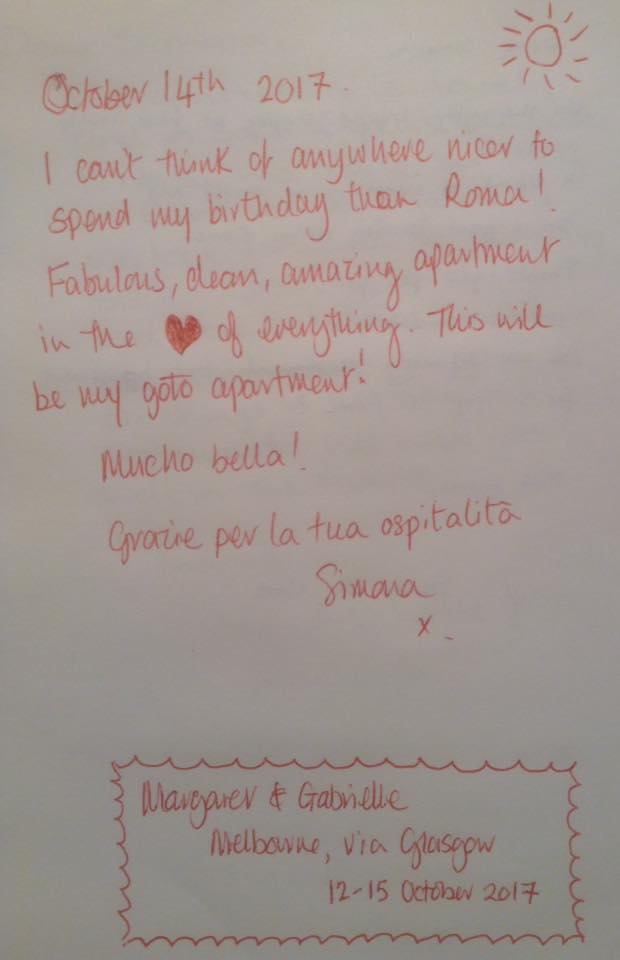 October 14th 2017.
I can't think of anywhere nicer to
spend my birthday than Roma!
Fabulous, clean, amazing apartment
in the ♥ of everything. This will
be my goto apartment!
Mucho bella!
Grazie per la tua ospitalità
Simona
x.
Margaret & Gabrielle
Melbourne, via Glasgow
12-15 October 2017